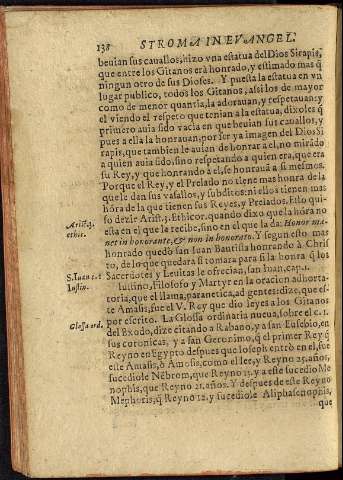 138 STROMA IN EVANGEL.
beuian sus cauallos, hizo vna estatua del Dios Sirapis,
que entre los Gitanos era honrado, y estimado mas q̃
ningun otro de sus Dioses. Y puesta la estatua en vn
lugar publico, todos los Gitanos, assi los de mayor
como de menor quantia, la adorauan, y respetauan: y
el viendo el respeto que tenian a la estatua, dixoles q̃
primero auia sido vacia en que beuian sus cauallos, y
pues a ella la honrauan, por ser ya imagen del Dios Si
rapis, que tambien le auian de honrar a el, no mirãdo
a quien auia sido, sino respetando a quien era, que era
su Rey, y que honrando a el, se honraua a si mesmos.
Porque el Rey, y el Prelado no tiene mas honra de la
que le dan sus vasallos, y subditos: ni ellos tienen mas
hõra de la que tienen sus Reyes, y Prelados. Esto qui-
so dezir Arist. 3. Ethicor. quando dixo que la hõra no
Arist. 3.
ethic.
esta en el que la recibe, sino en el que la da: Honor ma-
net in honorante, & non in honorato. Y segun esto mas
honrado quedò san Iuan Bautista honrando à Chris
to, de lo que quedara si tomara para si la honra q̃ los
Sacerdotes y Leuitas le ofrecian, san Iuan, cap. 1.
S. Iuan c. 1
Iustin.
Iustino, Filosofo y Martyr en la oracion adhorta-
toria, que el llama, parænetica, ad gentes: dize, que es-
te Amasis, fue el V. Rey que dio leyes a los Gitanos
por escrito. La Glossa ordinaria nueua, sobre el c. 1.
Glossa ord.
del Exodo, dize citando a Rabano, y a san Eusebio, en
sus coronicas, y a san Geronimo, q̃ el primer Rey q̃
Reyno en Egypto despues que Ioseph entrò en el, fue
este Amasis, ò Amosis, como el lee, y Reyno 25. años,
sucediole Nèbrom, que Reyno 13. y a este sucedio Me
nophis, que Reyno 21. años. Y despues de este Reyno
Mephoris, q̃ Reyno 12. y sucediole Aliphasenophis,
que